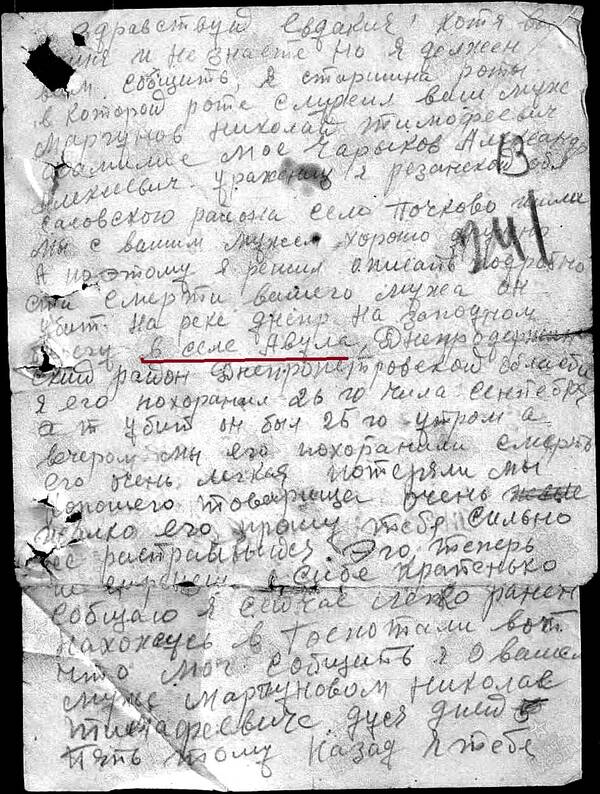 Здравствуй Евдакия! хотя вы
меня и не знаете но я должен
вам сообщить, я старшина роты
в которой роте служил ваш муж
Мартунов Николай Тимофеевич
фамилие мое Чарыков Александр
Алексеевич. уражениц я резанской обл
13
села Почково жили
мы с вашим мужем хорошо дружно
741
А по этому я решил описать подробно
сти смерти вашего мужа он
убит на реке днепр на западном
берегу в селе Авула, Днепродзержин
ский район Днепропетровской области
я его похоранил 26 го числа сентября
а убит он был 25 го утром а
вечером мы его похоранили смерть
его очень легкая потеряли мы
хорошего товарища очень
жалко его прошу тебя сильно
не растраивыйся. Его теперь
не о себе кратенько
сообщаю я сейчас легко ранен
нахожусь в Госпотали вот
что мог сообщить я о вашем
муже Мартуновом Николае
Тимафеевиче. дуся дней
пять тому назад я тебе